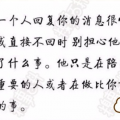 一个人回复你的消息很
或直接不回时 别担心他
了什么事。他只是在陪
重要的人或者在做比你
的事。